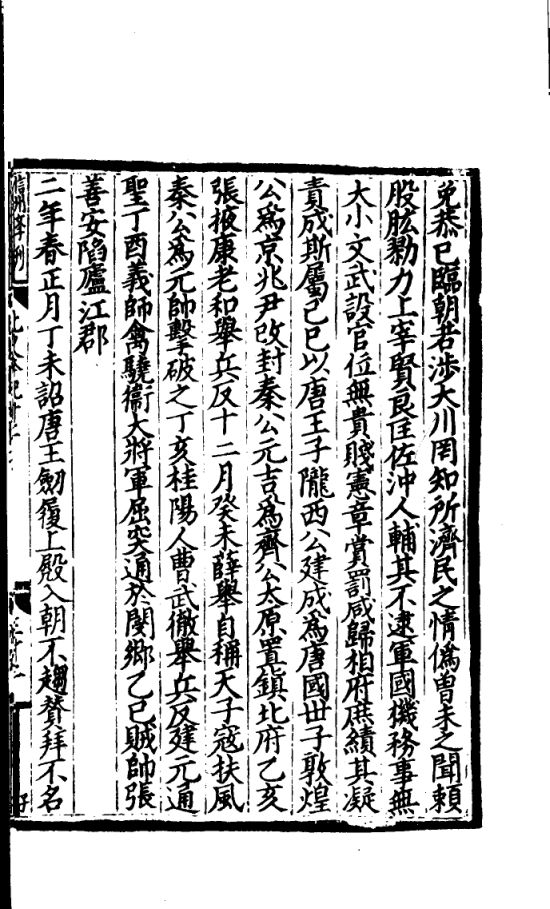 免恭已臨朝若涉大川罔知所濟民之情偽曽未之聞頼
股肱勠力上宰賢良匡佐沖人輔其不逮軍國機務事無
大小文武設官位無貴賤憲章賞罰咸歸相府庶績其凝
責成斯屬己巳以唐王子隴西公建成爲唐國丗子敦煌
公爲京兆尹改封秦公元吉爲齊公太原置鎮北府乙亥
張掖康老和舉兵反十二月癸未薛舉自稱天子寇扶風
秦公爲元帥擊破之丁亥桂陽人曹武徹舉兵反建元通
聖丁酉義師禽驍衞大將軍屈突通於閿鄉乙巳賊帥張
善安陷廬江郡
二年春正月丁未詔唐王劒履上殿入朝不趨贊拜不名
信州